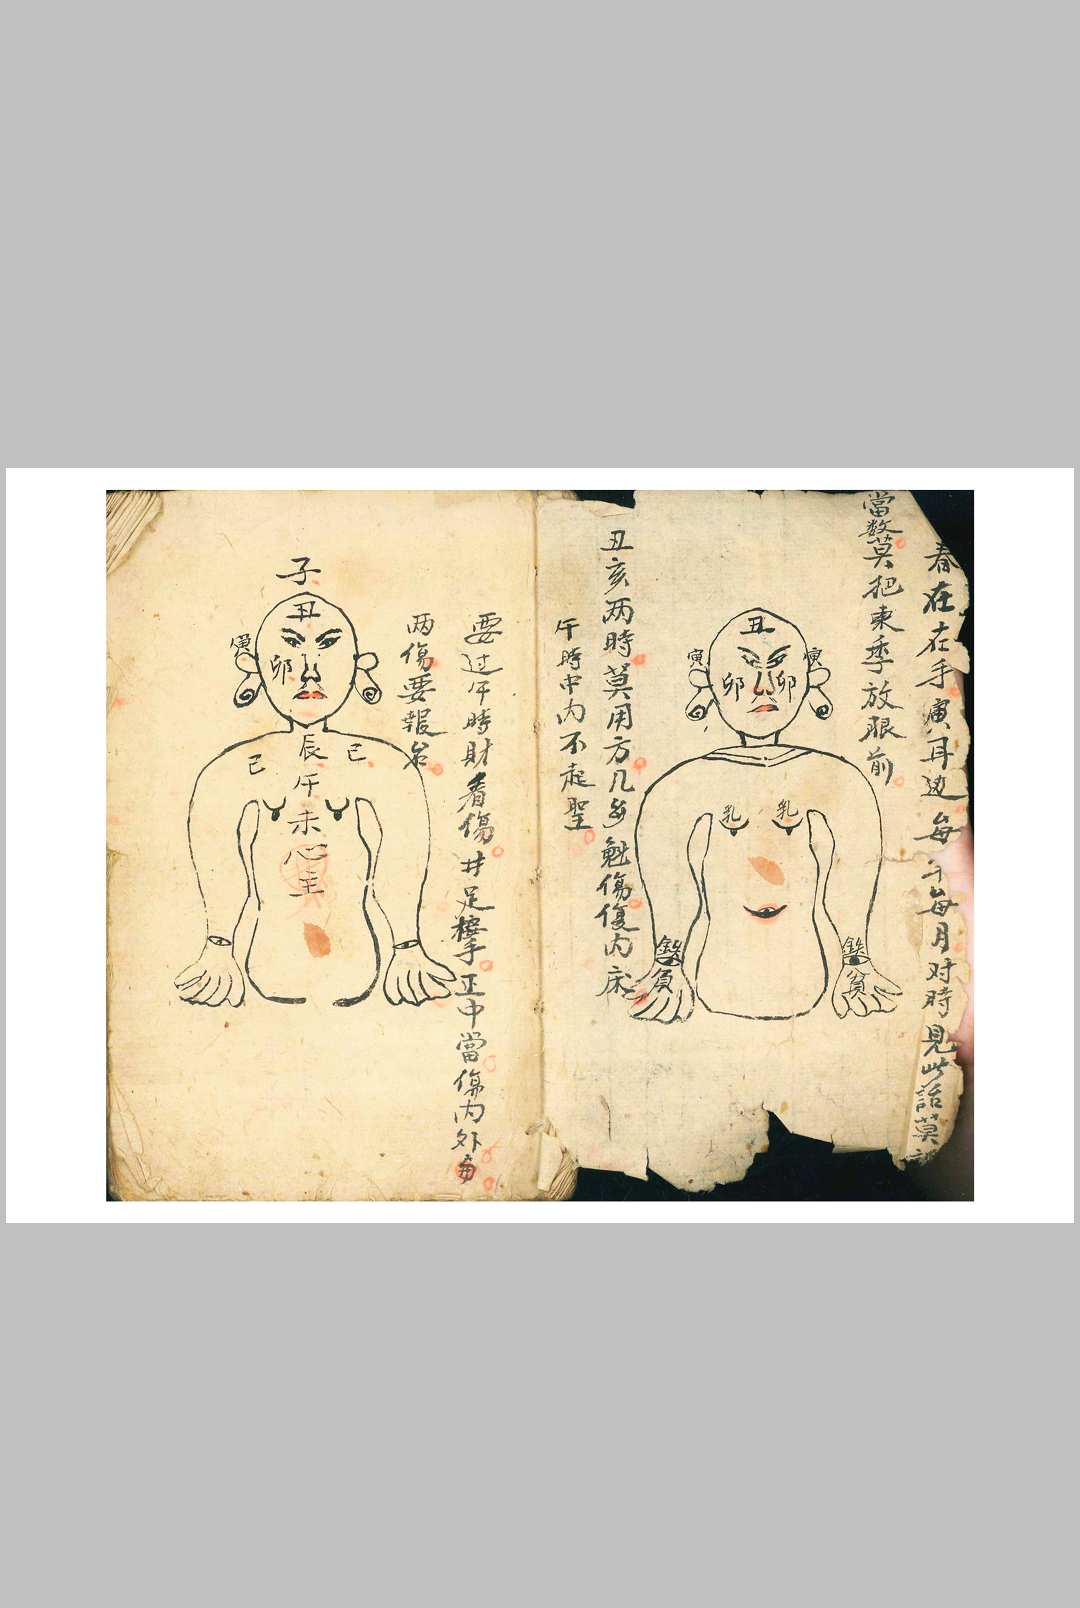 當數莫把東季放眼前
春在在手寅耳边每年每月对時見此話莫
丑
寅
寅
卯
卯
乳
乳
丑亥两時莫用方几
傷
内床
午時中内不起聖
要过午時財看傷井足
手正中當傷内外
两傷要報
子
丑
寅
卯
辰
己
己
午
未
心主